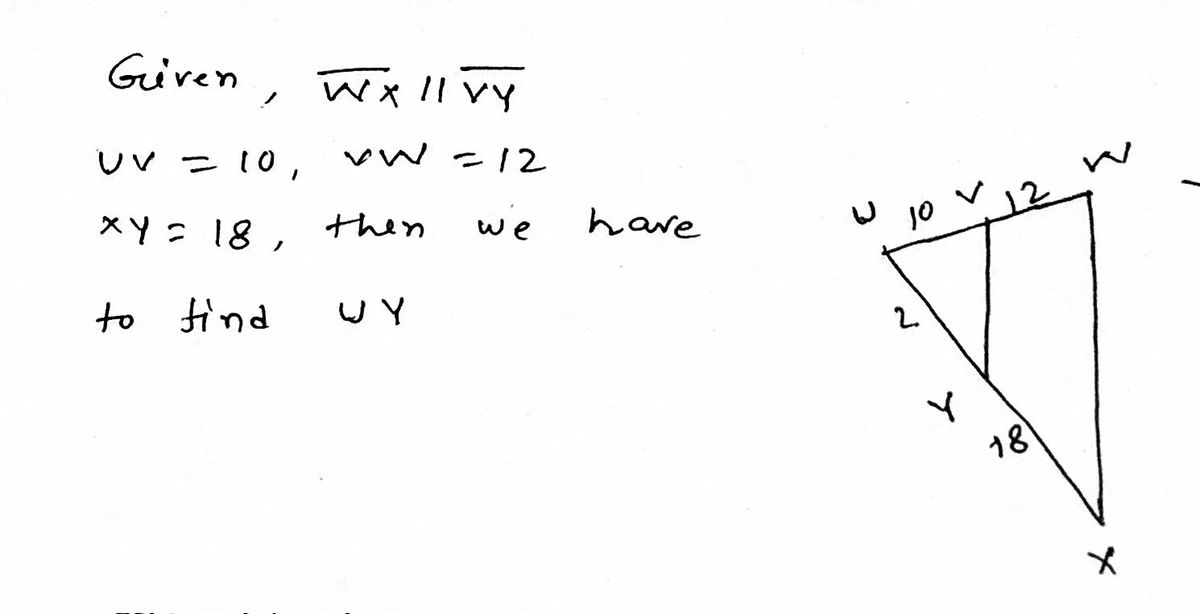 Given, WX || VY
UV = 10, VW = 12
XY = 18, then we have
to find UY
U 10 V 12 W
2
Y
18
X